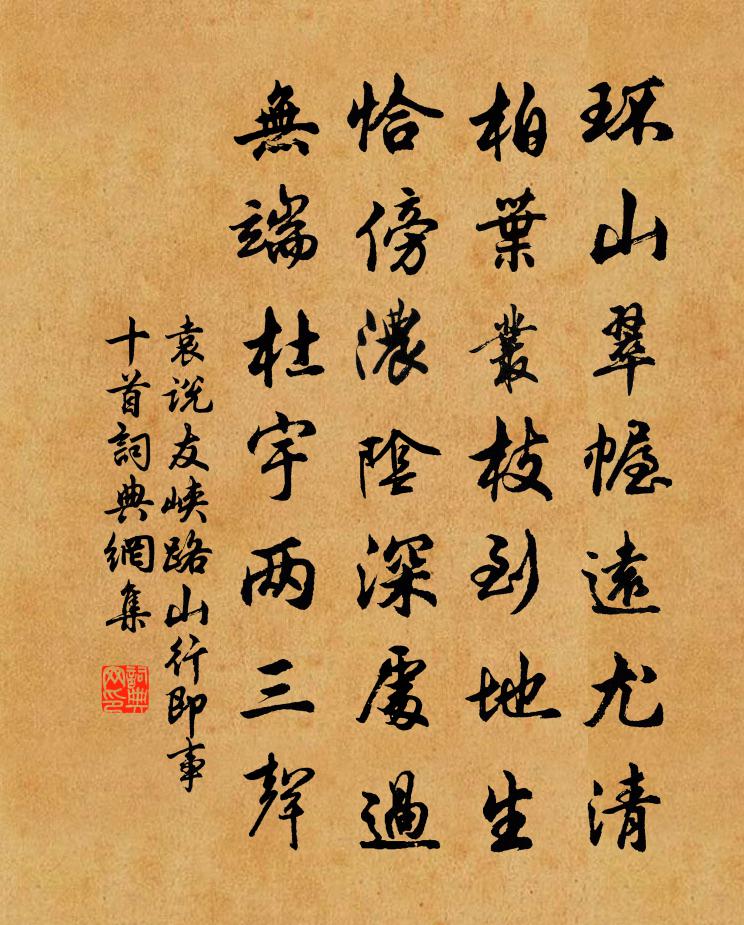 环山翠幄遠尤清
柏葉叢枝到地生
恰傍濃陰深處過
無端杜宇两三聲
袁说友峡路山行即事
十首詞典網集
詞典网印